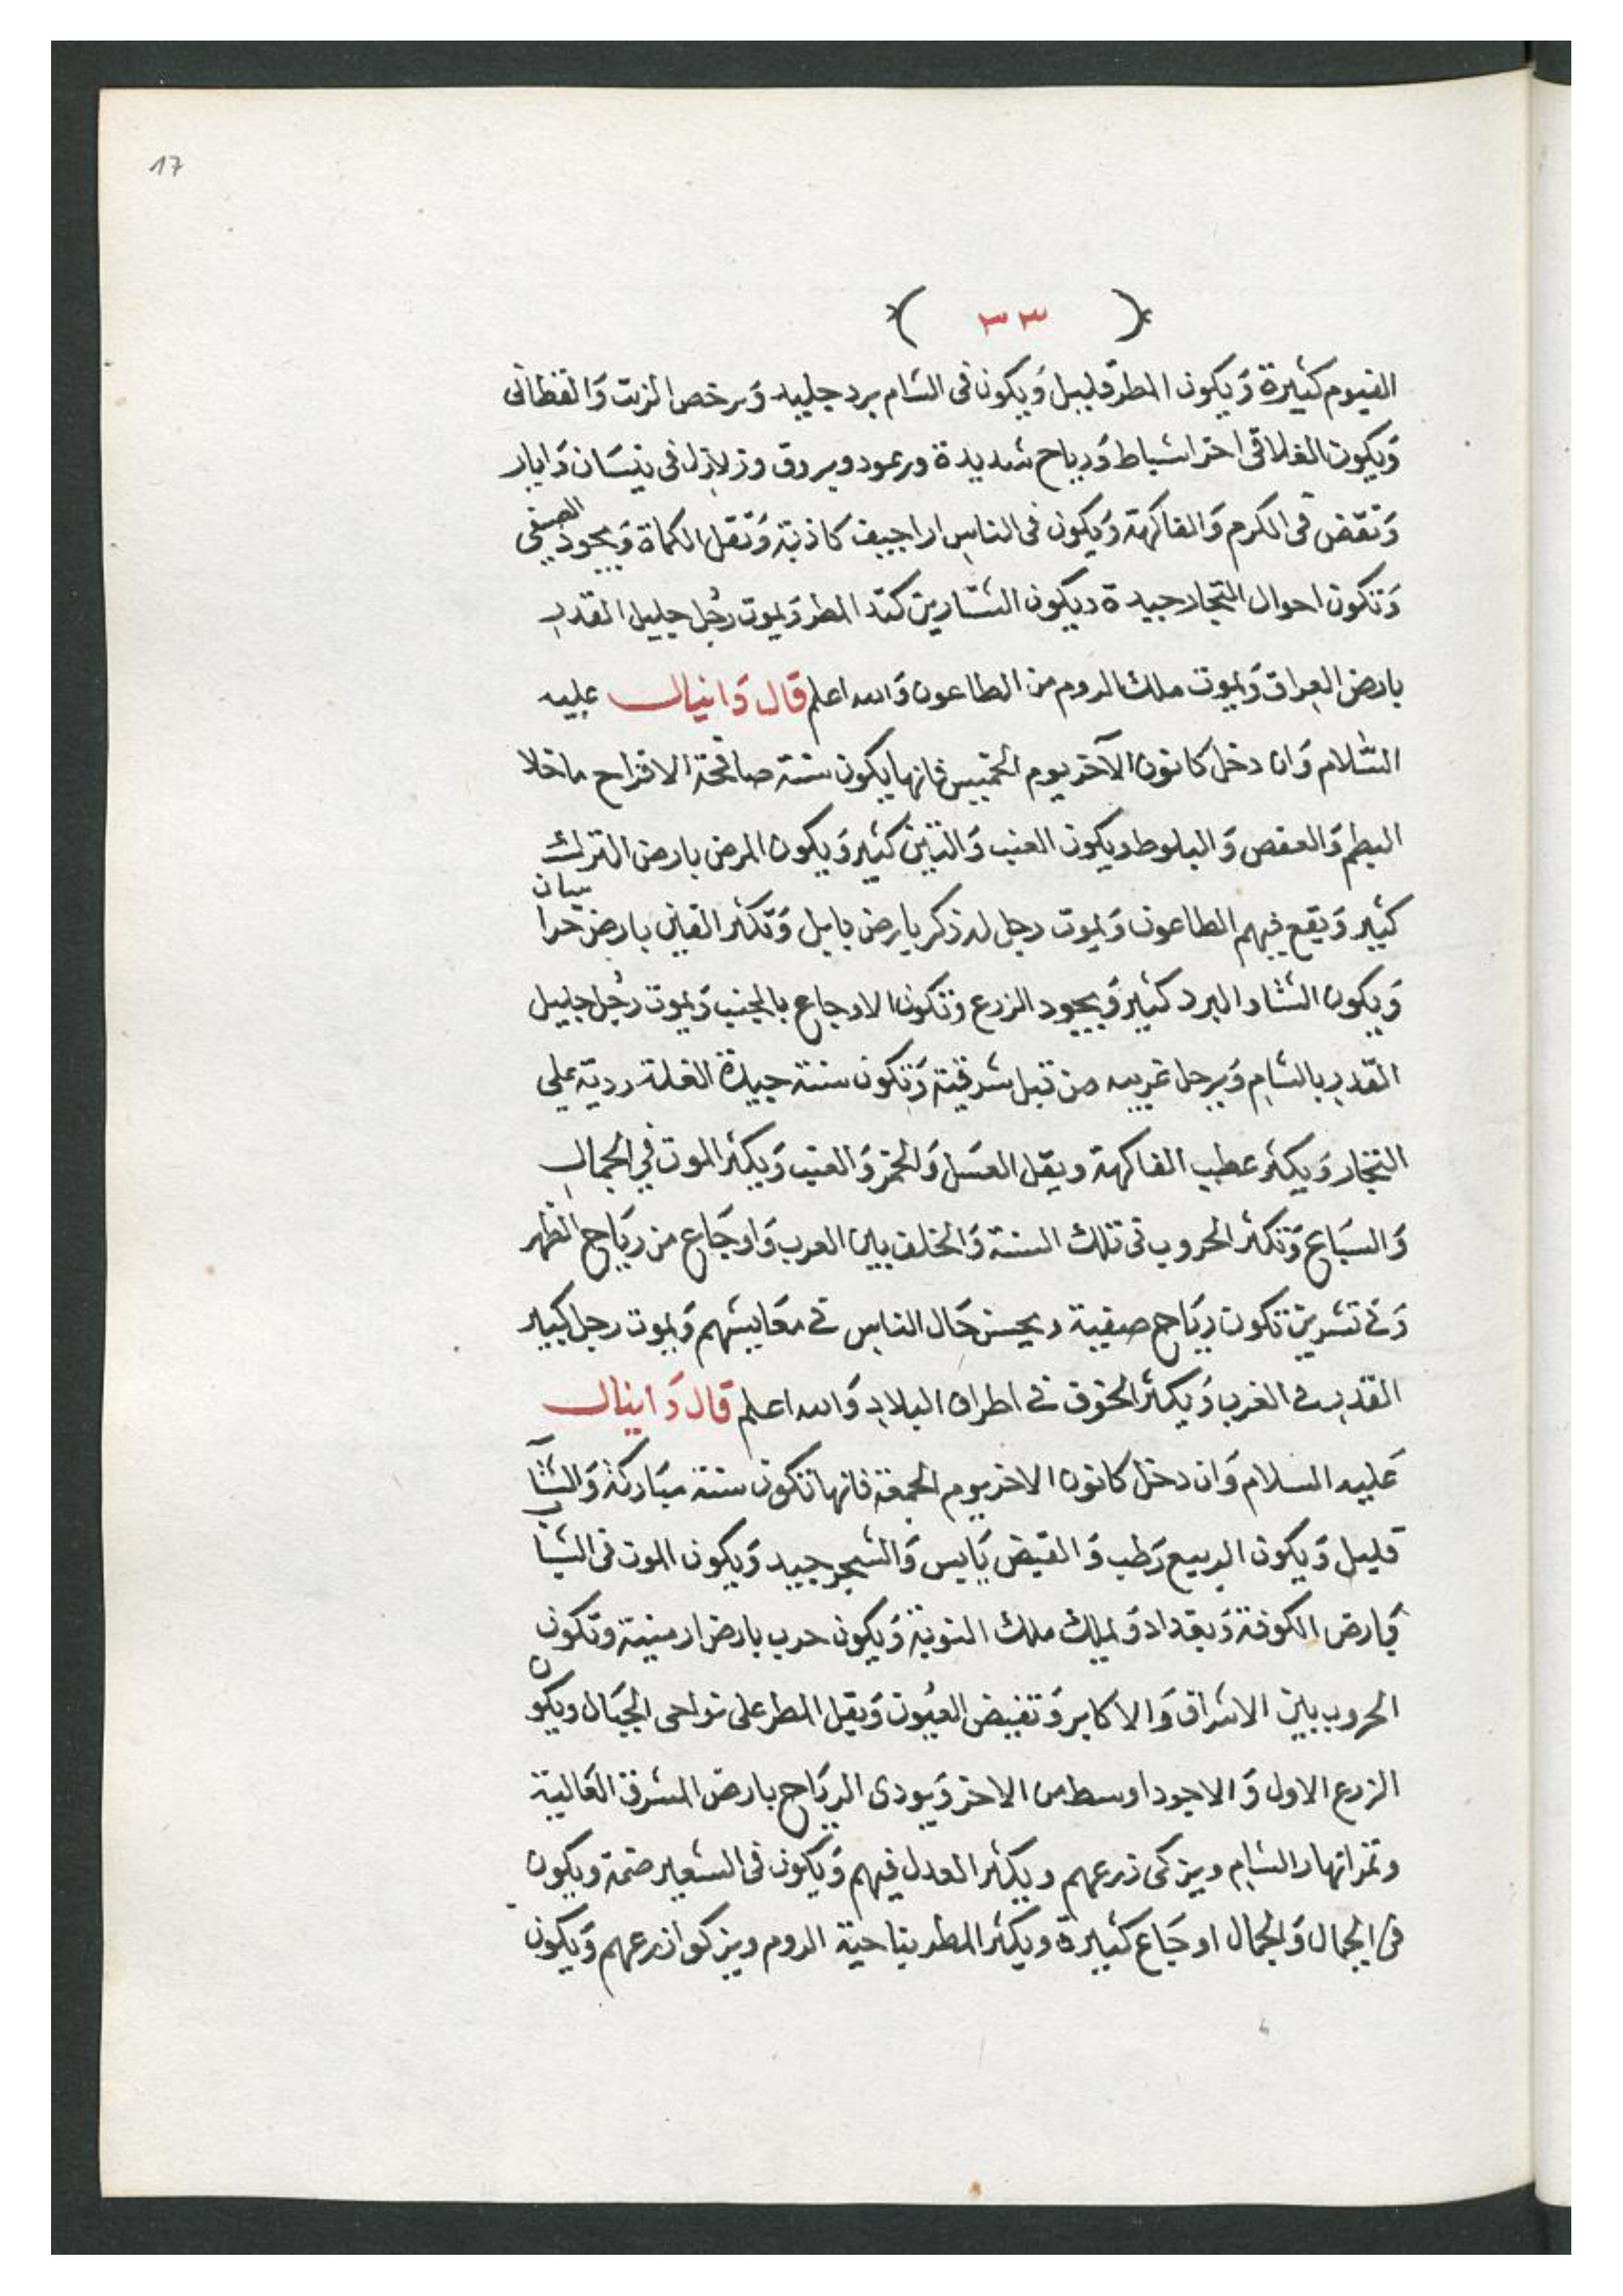 17
( ٣٣ )
الغيوم كثيرة وَيكون المطر قليل وَيكون فى الشام برد جليد وَيرخص الزيت وَالقطانى
وَيكون الغلا فى اخر اشباط وَرياح شديدة ورعود وبروق وزلازل فى نيسَان وَايار
وَنقض فى الكرم وَالفاكهة وَيكون فى الناس اراجيف كاذبة وَتقل الكماة وَيجود الصيفى
وَتكون احوال التجار جيدة ويكون التشارين كتد المطر وَيموت رجُل جليل القدر
بارض العراق وَيموت ملك الروم من الطاعون وَالله اعلم قال دَانيال عليه
السَّلام وَان دخل كانون الآخر يوم الخميس فانها يكون سنة صالحة الافراح ماخلا
البطم وَالعفص وَالبلوط ويكون العنب وَالتين كثير وَيكون المرض بارض الترك
كثير وَيقع فيهم الطاعون وَيموت رجل له ذكر بارض بابل وَتكثر الفتن بارض خراسان
وَيكون الشتا والبرد كثير وَيجود الزرع وَتكون الاوجاع بالجنب وَيموت رجُل جليل
القدر بالشام وَيرحل غريب من قبل شرقية وَتكون سنة جيدة الغلة ردية على
التجار وَيكثر عطب الفاكهة ويقل العسَل وَالخمر وَالعنب وَيكثر الموت فى الجمال
وَالسبَاع وَتكثر الحروب فى تلك السنة وَالخلف بين العرب وَاوجَاع من ريَاح الظهر
وَفى تشرين تكون ريَاح صيفية ويحسن حَال الناس فى معَايشهم وَيموت رجل كبير
القدر فى الغرب وَيكثر الخوف فى اطراف البلاد وَالله اعلم قال دَانيال
عَليه السلام وَان دخل كانون الاخر يوم الجمعة فانها تكون سنة مبَاركة وَالشتآ
قليل وَيكون الربيع رَطب وَالقيض يَابس وَالشجر جيد وَيكون الموت فى الشتا
بَارض الكوفة وَبغداد وَيملك ملك النوبة وَيكون حرب بارض ارمنية وتكون
الحروب بين الاشراف وَالاكابر وَتفيض العيُون وَيقل المطر على نواحى الجبَال ويكون
الزرع الاول وَالاجود اوسط من الاخر وَيودى الريَاح بارض المشرق الغَالية
وثمر انهار الشام ويزكى زرعهم ويكثر العدل فيهم وَيكون فى الشعير ضمة ويكون
فى الجمال وَالجمال اوجَاع كثيرة ويكثر المطر بناحية الروم ويزكوا زرعهم وَيكون